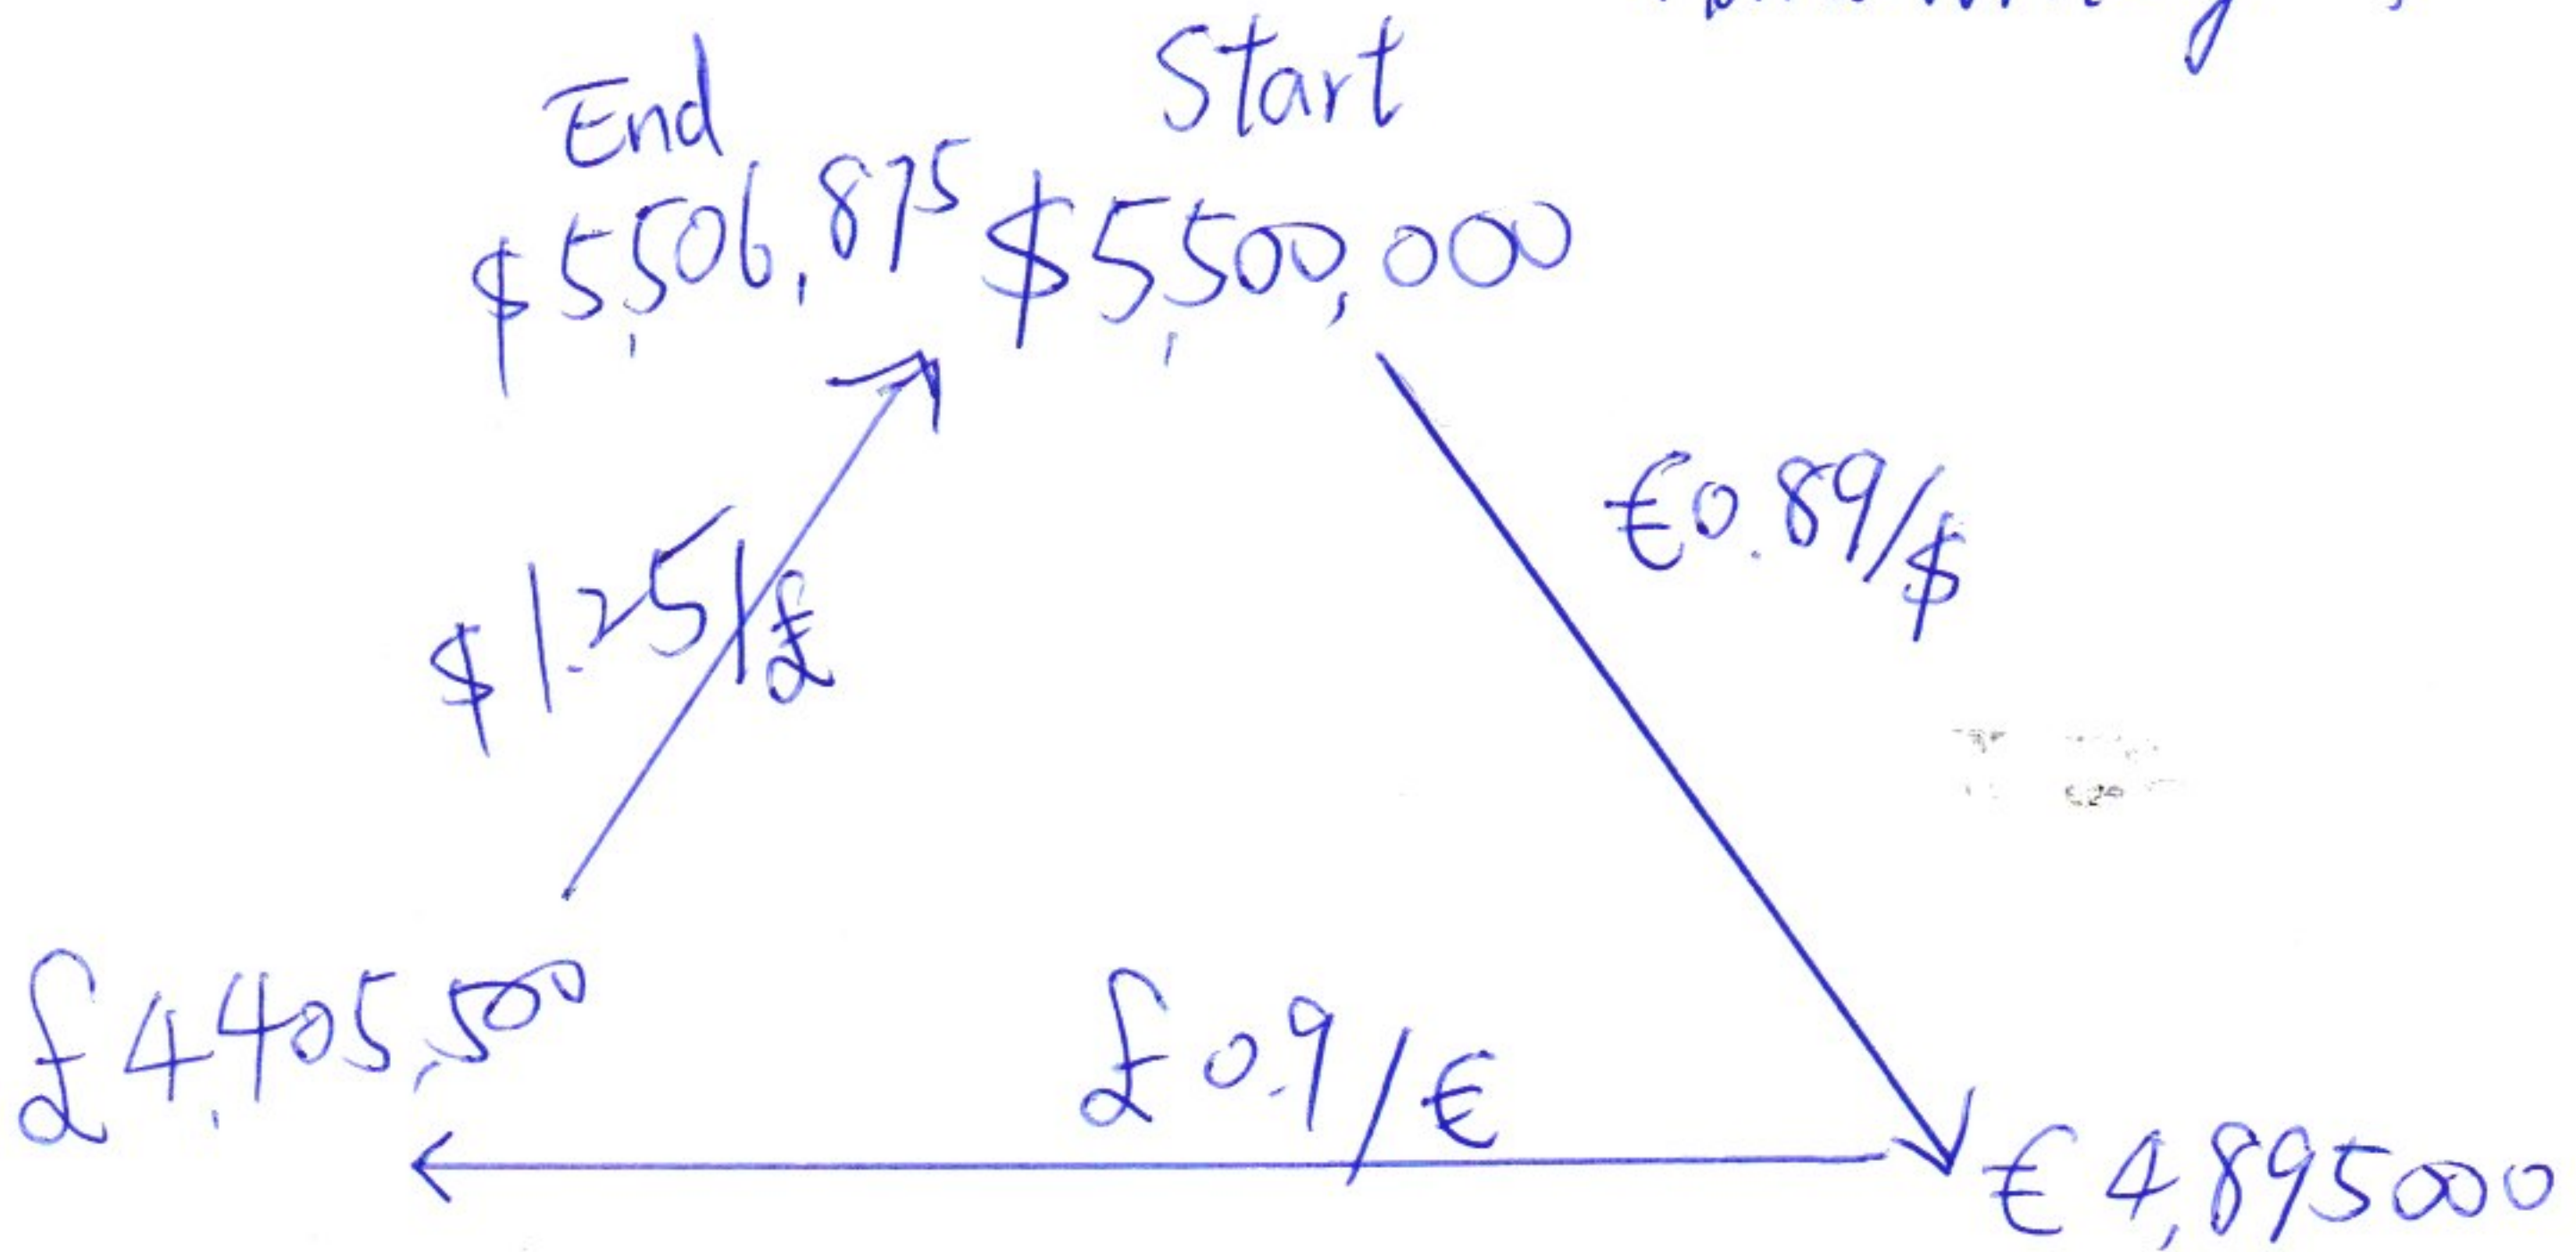 End
Start
$5,506,875
$5,500,000
€0.89/$
$1.25/£
£4,405,500
£0.9/€
€4,895000